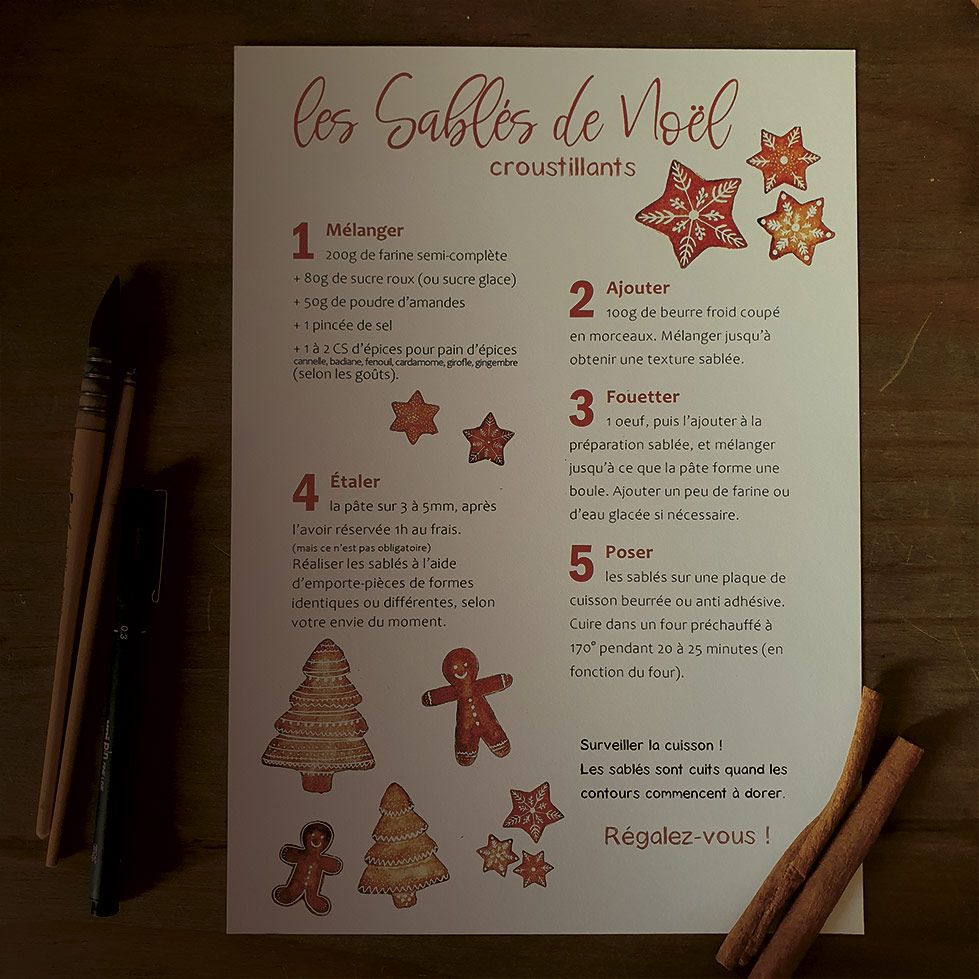 les Sablés de Noël
croustillants
1 Mélanger
200g de farine semi-complète
+ 80g de sucre roux (ou sucre glace)
+ 50g de poudre d'amandes
+ 1 pincée de sel
+ 1 à 2 CS d'épices pour pain d'épices
cannelle, badiane, fenouil, cardamome, girofle, gingembre
(selon les goûts).
2 Ajouter
100g de beurre froid coupé
en morceaux. Mélanger jusqu'à
obtenir une texture sablée.
3 Fouetter
1 oeuf, puis l'ajouter à la
préparation sablée, et mélanger
jusqu'à ce que la pâte forme une
boule. Ajouter un peu de farine ou
d'eau glacée si nécessaire.
4 Étaler
la pâte sur 3 à 5mm, après
l'avoir réservée 1h au frais.
(mais ce n'est pas obligatoire)
Réaliser les sablés à l'aide
d'emporte-pièces de formes
identiques ou différentes, selon
votre envie du moment.
5 Poser
les sablés sur une plaque de
cuisson beurrée ou anti adhésive.
Cuire dans un four préchauffé à
170° pendant 20 à 25 minutes (en
fonction du four).
Surveiller la cuisson !
Les sablés sont cuits quand les
contours commencent à dorer.
Régalez-vous !
0.3